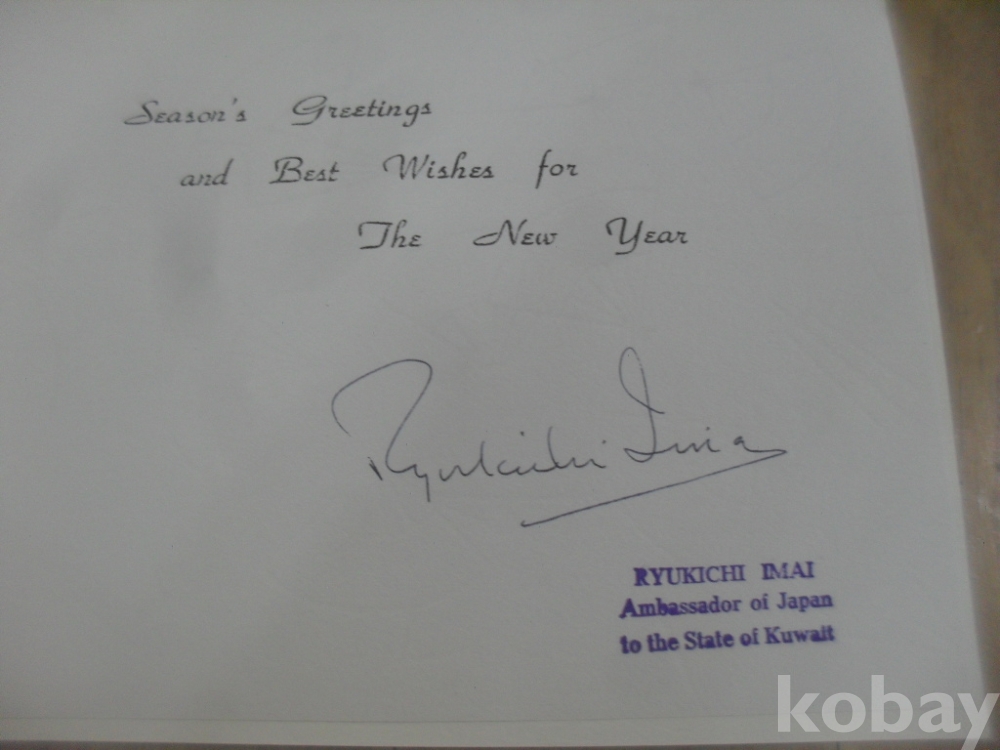 Season's Greetings
and Best Wishes for
The New Year
Ryukichi Imai
RYUKICHI IMAI
Ambassador of Japan
to the State of Kuwait
kobay